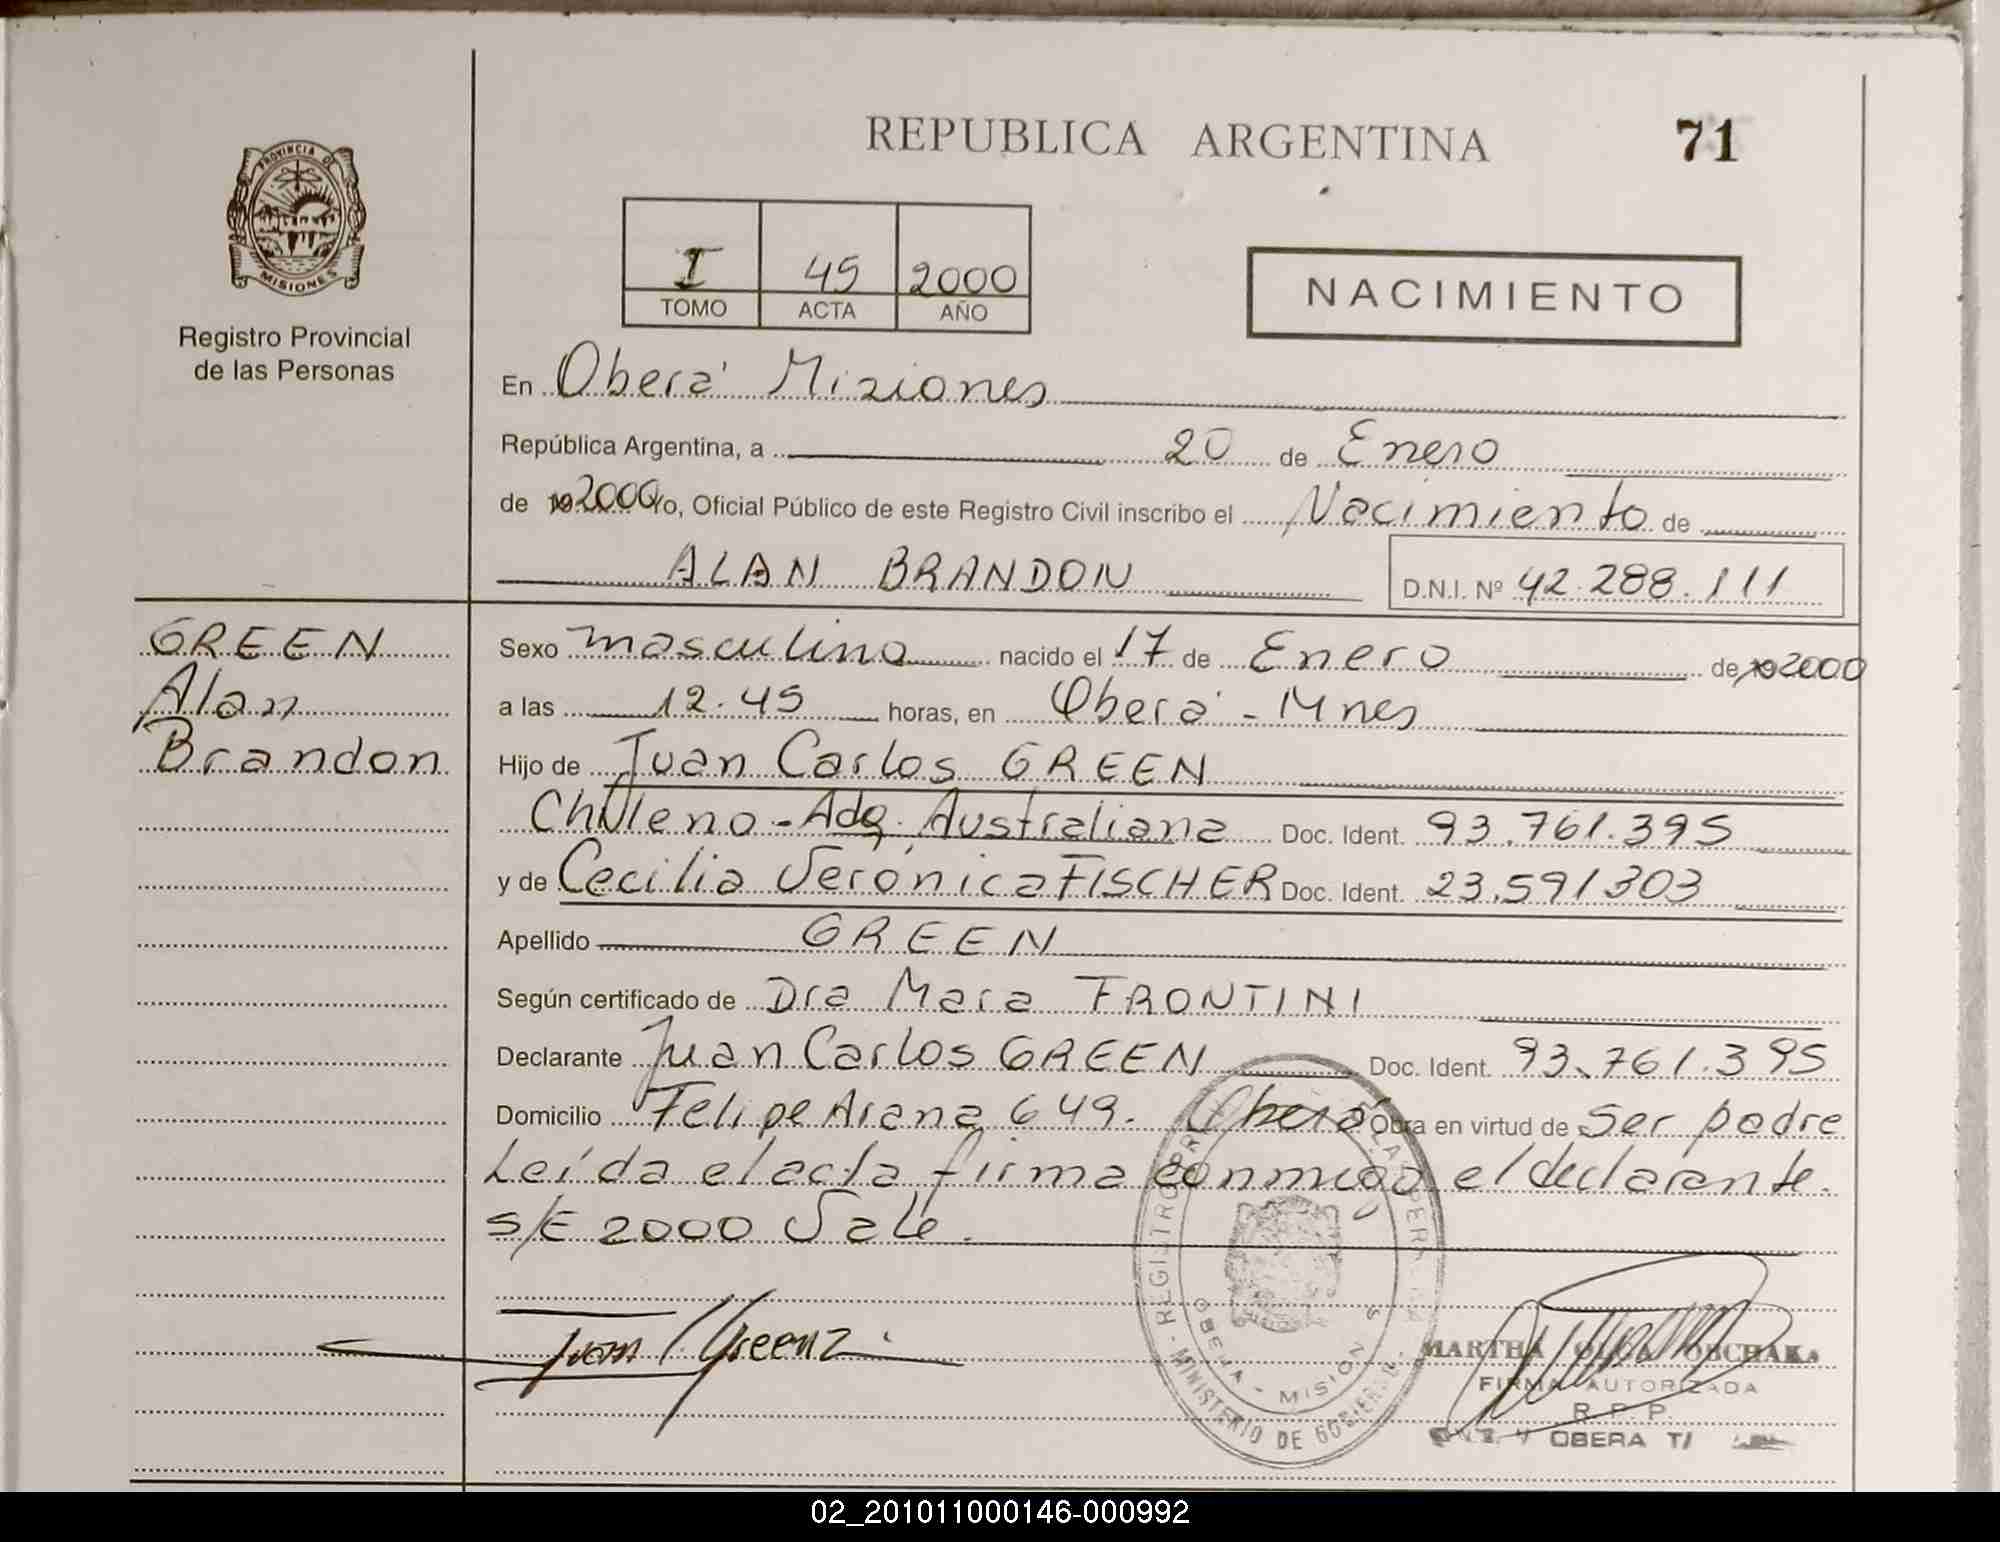 REPUBLICA ARGENTINA
71
PROVINCIA DE
MISIONES
Registro Provincial
de las Personas
I 45 2000
TOMO ACTA AÑO
NACIMIENTO
En Oberá Misiones
República Argentina, a 20 de Enero
de 19 2000 Yo, Oficial Público de este Registro Civil inscribo el Nacimiento de
ALAN BRANDON D.N.I. Nº 42.288.111
GREEN
Alan
Brandon
Sexo masculino nacido el 17 de Enero de 19 2000
a las 12.45 horas, en Oberá - Mnes
Hijo de Juan Carlos GREEN
Chileno - Adq. Australiana Doc. Ident. 93.761.395
y de Cecilia Verónica FISCHER Doc. Ident. 23.591303
Apellido GREEN
Según certificado de Dra Mara FRONTINI
Declarante Juan Carlos GREEN Doc. Ident. 93.761.395
Domicilio Felipe Arana 649. Oberá Obra en virtud de ser padre
Leída el acta firma conmigo el declarante.
S/E 2000 Vale.
Juan Green
MARTHA OLGA
FIRMA AUTORIZADA
R.P.P.
OBERA
MINISTERIO DE GOBIERNO
OBERA - MISIONES
02_201011000146-000992